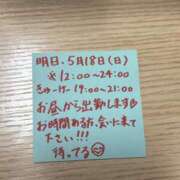 明日、5月18日(日)
※12:00〜24:00
きゅーけー 19:00〜21:00
お昼から出勤します
お時間ある方、会いに来て
下さい!!!
待ってる